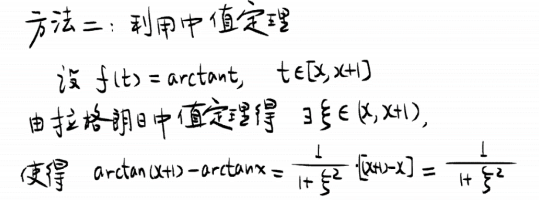 方法二：利用中值定理
设 f(t) = arctant, t∈[x, x+1]
由拉格朗日中值定理得 ∃ξ∈(x, x+1),
使得 arctan(x+1) - arctanx = 1/(1+ξ²) · [(x+1)-x] = 1/(1+ξ²)